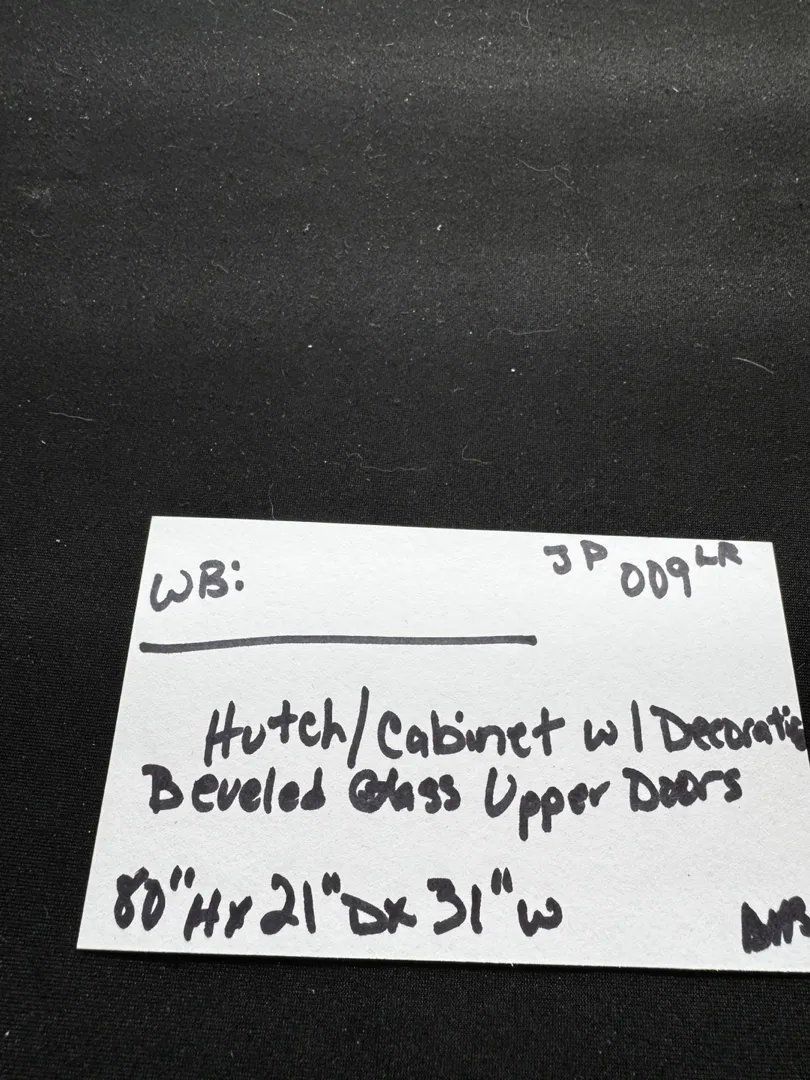 WB: JP 009 LR
Hutch/Cabinet w/Decorati
Beveled Glass Upper Doors
80"Hx 21"Dx 31"W